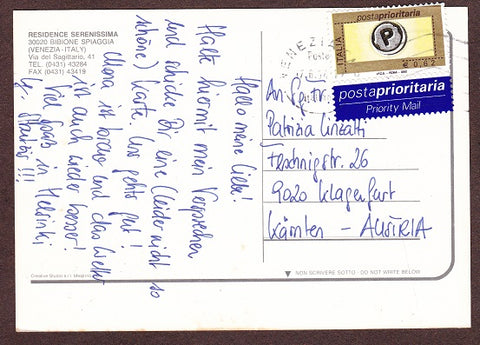 RESIDENCE SERENISSIMA
30020 BIBIONE SPIAGGIA
(VENEZIA - ITALY)
Via del Sagittario, 41
TEL. (0431) 43264
FAX (0431) 43419
Hallo meine Liebe!
Halte hiermit mein Versprechen
und schicke Dir eine (leider nicht so
schöne) Karte. Uns gehts gut!
Mona ist brav und das Wetter
ist auch wieder besser!
Viel Spaß in Helsinki
VENEZIA
Poste
ITALIA
postaprioritaria
P
€ 0,62
postaprioritaria
Priority Mail
Patrizia
26
9020 Klagenfurt
Kärnten - AUSTRIA
NON SCRIVERE SOTTO - DO NOT WRITE BELOW